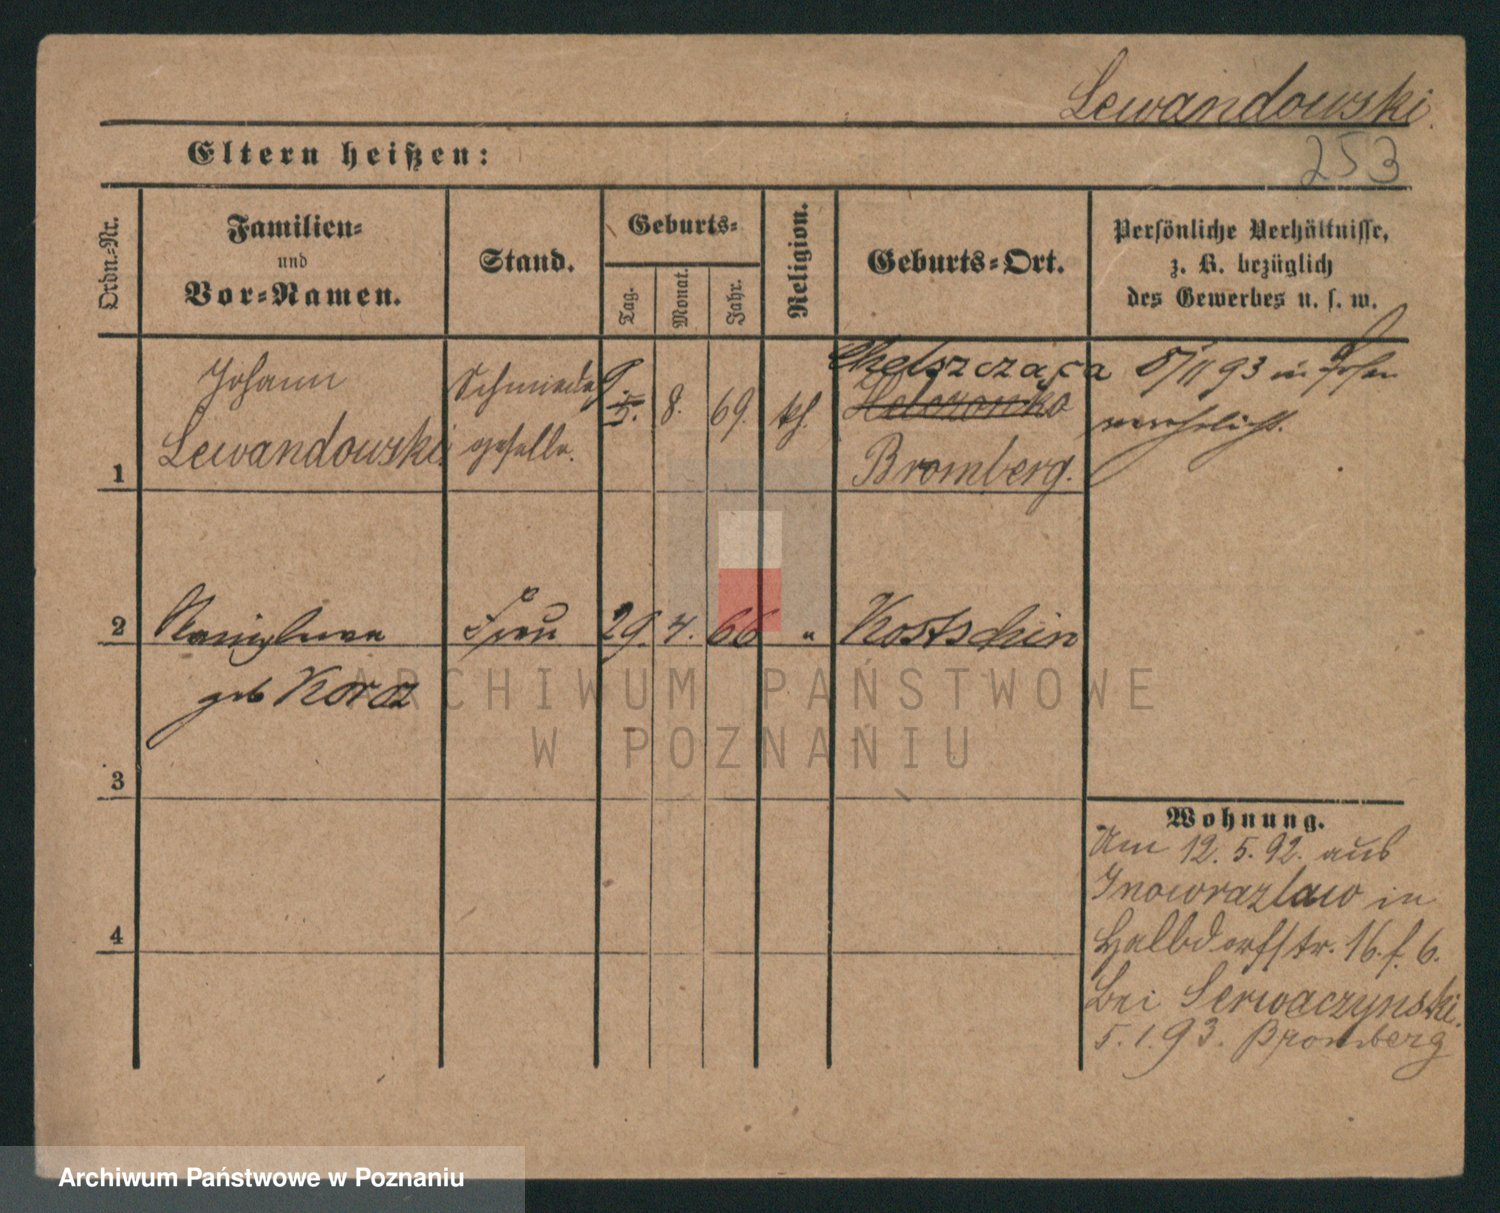 Lewandowski
253
Eltern heißen:
Ordn.-Nr.
Familien-
und
Vor-Namen.
Stand.
Geburts-
Tag.
Monat.
Jahr.
Religion.
Geburts-Ort.
Persönliche Verhältnisse,
z. B. bezüglich
des Gewerbes u. s. w.
1
Johann
Lewandowski
Schmiede
geselle.
9
5.
8.
69.
kh.
Bromberg.
5/11 93 in Posen
verehelicht.
2
Frau
29. 4. 66 "
Kostschin
geb Koraz
3
4
Wohnung.
Am 12. 5. 92. aus
Inowrazlaw in
Halbdorfstr. 16. f. 6.
bei Serwaczynski.
5. 1. 93. Bromberg
ARCHIWUM PAŃSTWOWE
W POZNANIU
Archiwum Państwowe w Poznaniu